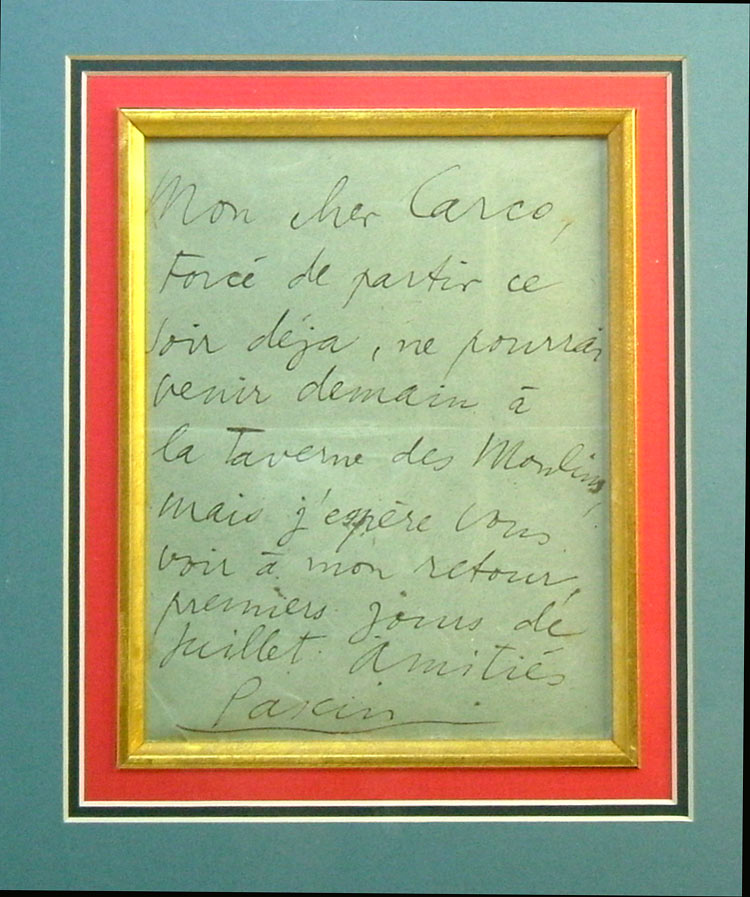 Mon cher Carco,
Forcé de partir ce
soir déja, ne pourrai
venir demain à
la Taverne des Moulins,
mais j'espère vous
voir à mon retour,
premiers jours de
Juillet. Amitiés
Pascin